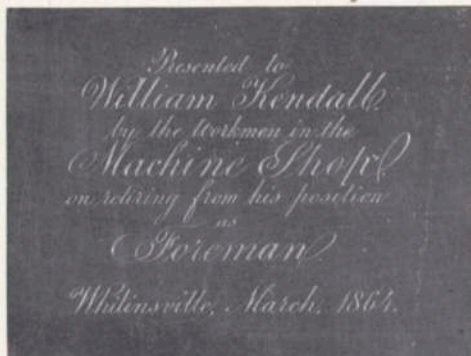 Presented to
William Kendall
by the Workmen in the
Machine Shop
on retiring from his position
as
Foreman
Whitinsville, March, 1864.